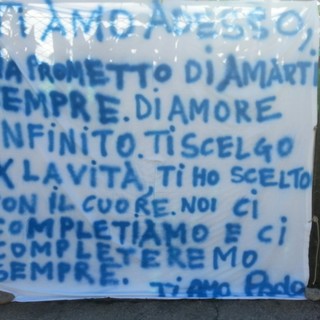 TI AMO ADESSO,
MA PROMETTO DI AMARTI
SEMPRE. DI AMORE
INFINITO. TI SCELGO
X LA VITÀ, TI HO SCELTO
CON IL CUORE. NOI CI
COMPLETIAMO E CI
COMPLETEREMO
SEMPRE.
TI AMO Paolo